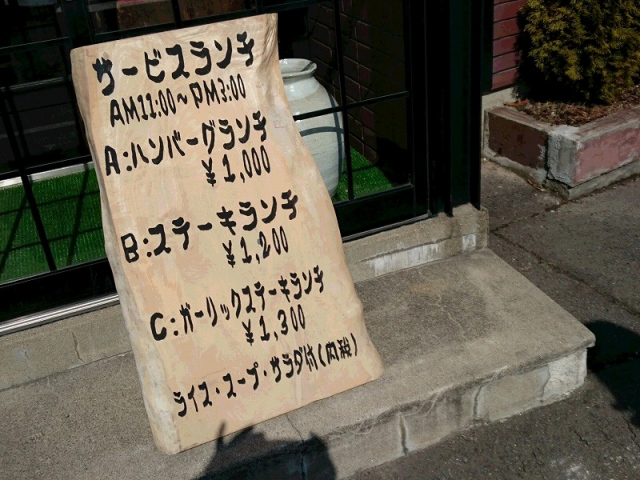 サービスランチ
AM11:00~PM3:00
A:ハンバーグランチ
¥1,000
B:ステーキランチ
¥1,200
C:ガーリックステーキランチ
¥1,300
ライス・スープ・サラダ付(内税)